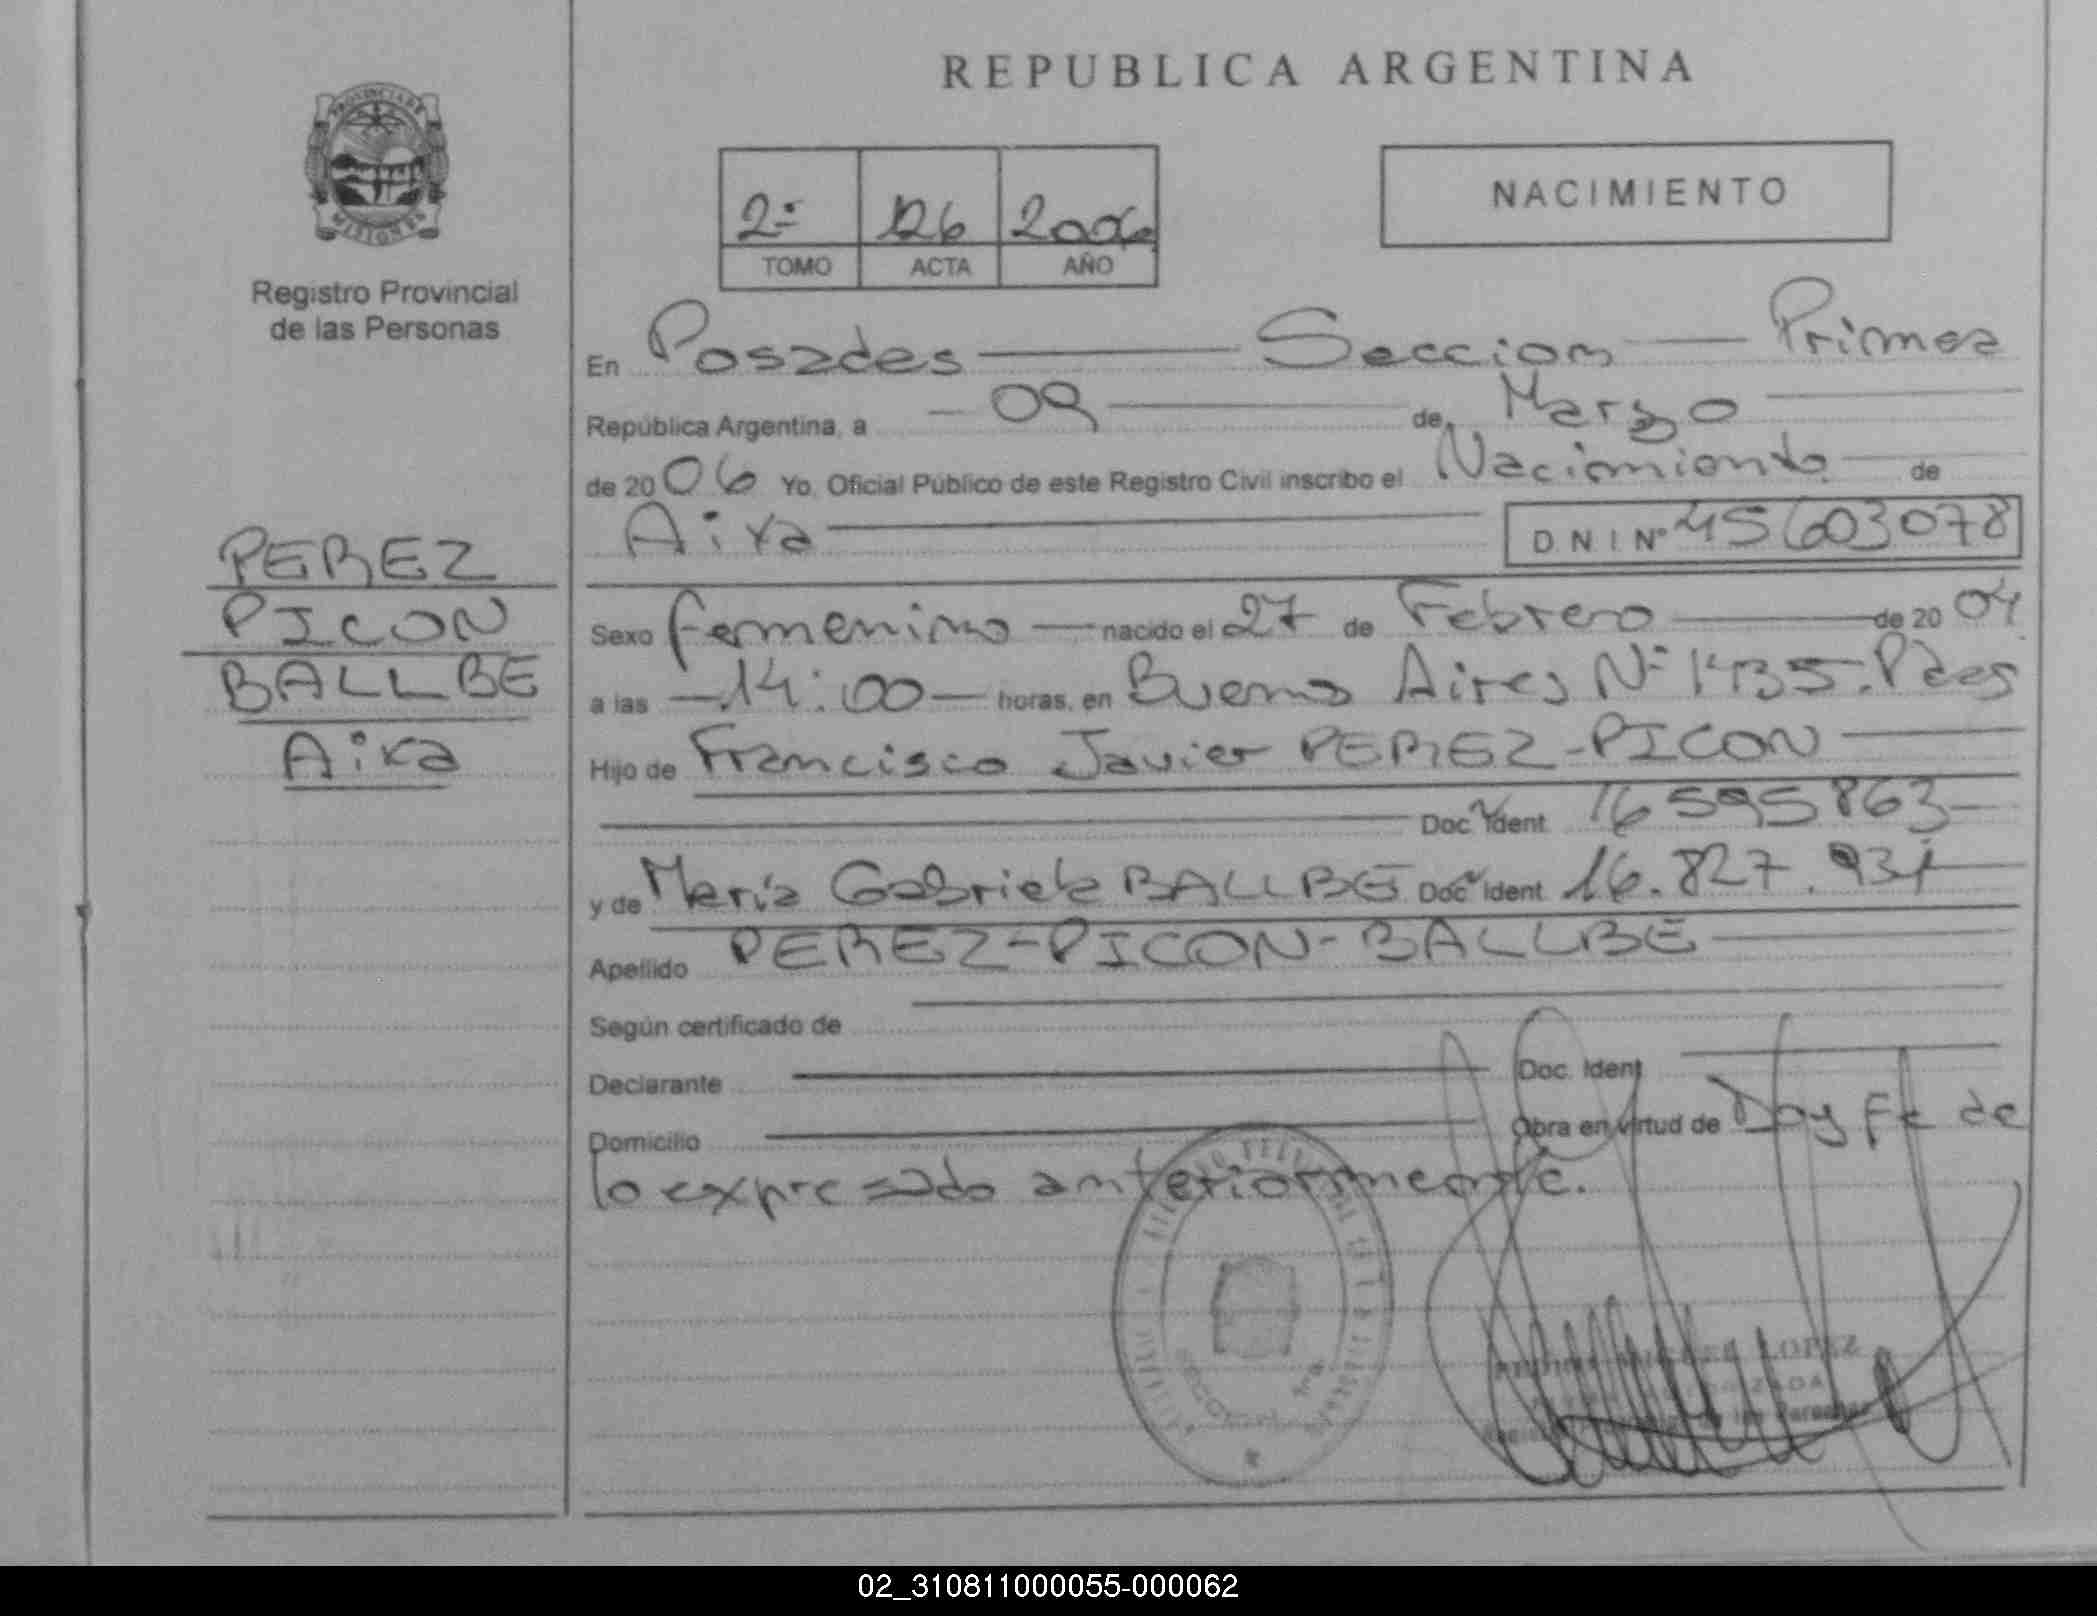 PROVINCIA DE
MISIONES
Registro Provincial
de las Personas
PEREZ
PICON
BALLBE
Aixa
REPUBLICA ARGENTINA
2º 126 2006
TOMO ACTA AÑO
NACIMIENTO
En Posadas Seccion Primera
República Argentina, a 09 de Marzo
de 2006 Yo, Oficial Público de este Registro Civil inscribo el Nacimiento de
Aixa D.N.I. Nº 45603078
Sexo femenino nacido el 27 de Febrero de 2004
a las 14:00 horas, en Buenos Aires Nº 1435. Pdas
Hijo de Francisco Javier PEREZ-PICON
Doc. Ident. 16595863
y de María Gabriela BALLBE Doc. Ident. 16.827.934
Apellido PEREZ-PICON-BALLBE
Según certificado de
Declarante Doc. Ident.
Domicilio Obra en virtud de Doy Fe de
lo expresado anteriormente.
LOPEZ
02_310811000055-000062